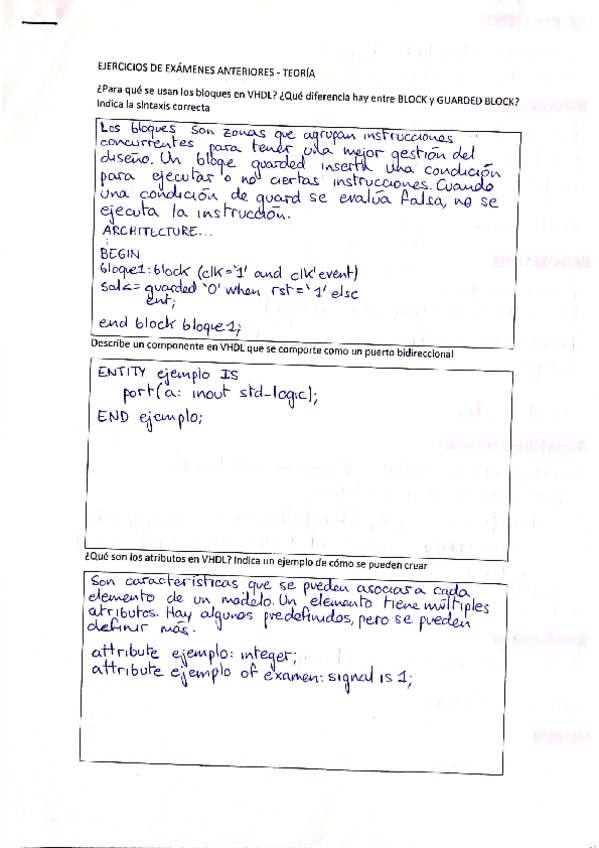 EJERCICIOS DE EXÁMENES ANTERIORES - TEORÍA
¿Para qué se usan los bloques en VHDL? ¿Qué diferencia hay entre BLOCK y GUARDED BLOCK?
Indica la sintaxis correcta
Los bloques son zonas que agrupan instrucciones
concurrentes para tener una mejor gestión del
diseño. Un bloqe guarded inserta una condición
para ejecutar o no ciertas instrucciones. Cuando
una condición de guard se evalúa falsa, no se
ejecuta la instrucción.
ARCHITECTURE...
⋮
BEGIN
bloque1: block (clk='1' and clk'event)
sal<= guarded '0' when rst='1' else
ent;
end block bloque1;
Describe un componente en VHDL que se comporte como un puerto bidireccional
ENTITY ejemplo IS
port(a: inout std_logic);
END ejemplo;
¿Qué son los atributos en VHDL? Indica un ejemplo de cómo se pueden crear
Son características que se pueden asociar a cada
elemento de un modelo. Un elemento tiene múltiples
atributos. Hay algunos predefinidos, pero se pueden
definir más.
attribute ejemplo: integer;
attribute ejemplo of examen: signal is 1;